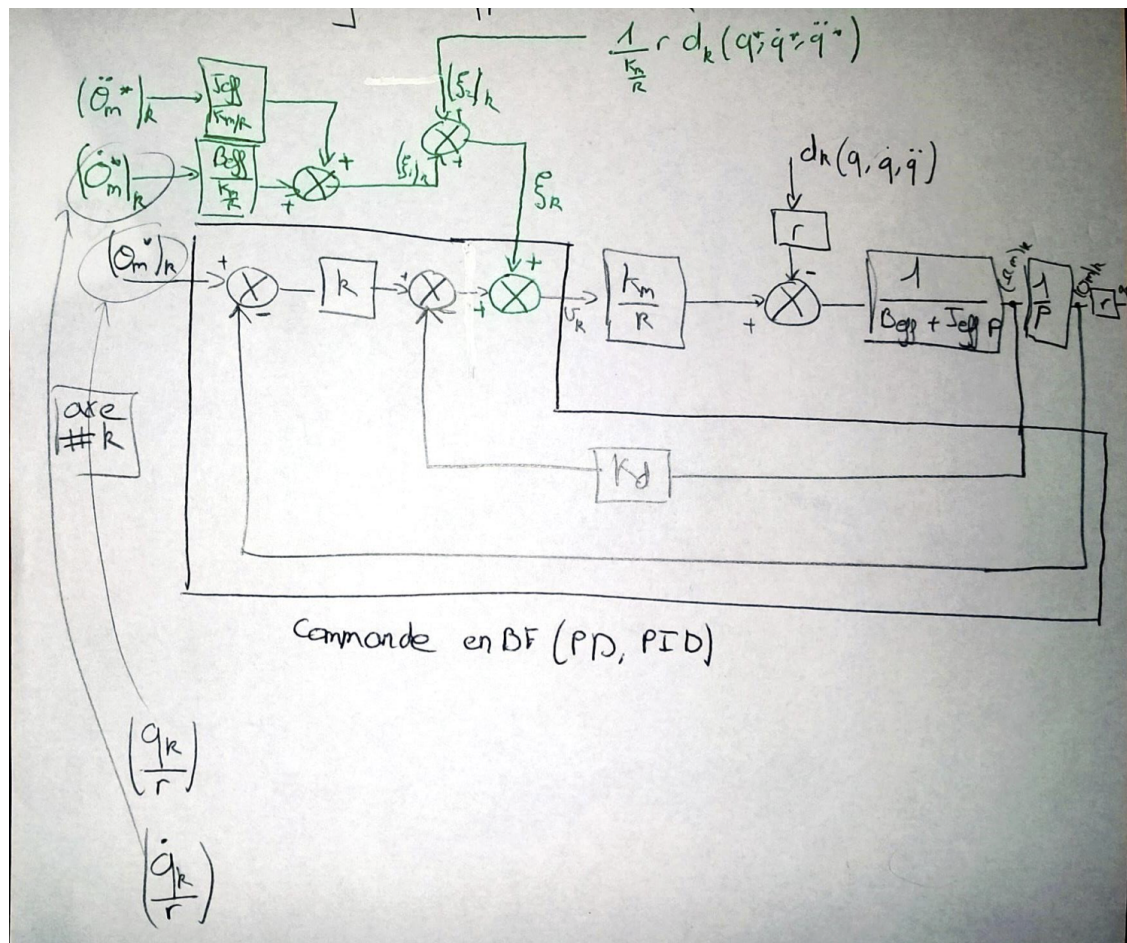 1/(Km/R) r dk(q*, q̇*, q̈*)
(θ̈m*)k
Jeff/(Km/R)
(ξ2)k
+
+
(θ̇m*)k
Beff/(Km/R)
+
+
(ξ1)k
ξk
dk(q, q̇, q̈)
r
(θm*)k
+
-
k
+
-
+
+
vk
Km/R
+
-
1/(Beff + Jeff p)
1/p
r
axe
#k
Kd
Commande en BF (PD, PID)
(qk/r)
(q̇k/r)